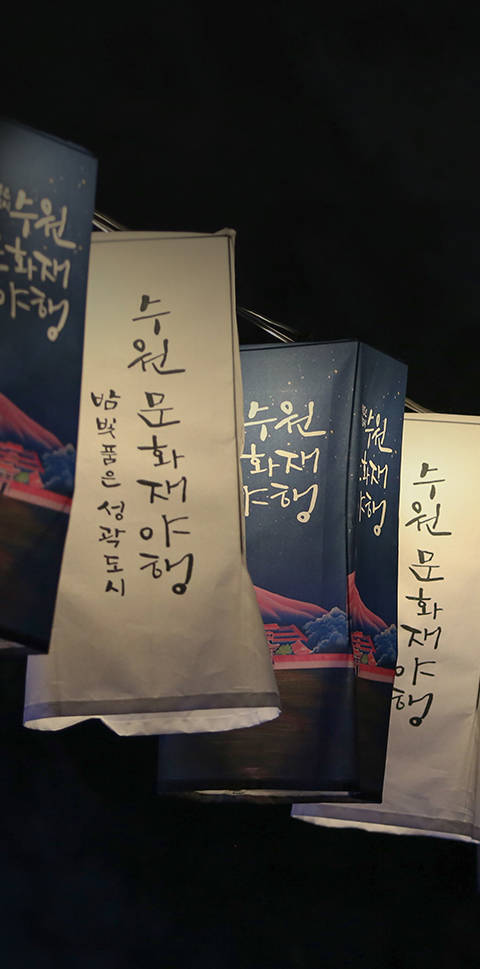 수원
화재
야행
수원 문화재 야행
밤빛품은 성곽도시
수원
화재
야행
수원
화재
야행
수원 문화재 야행